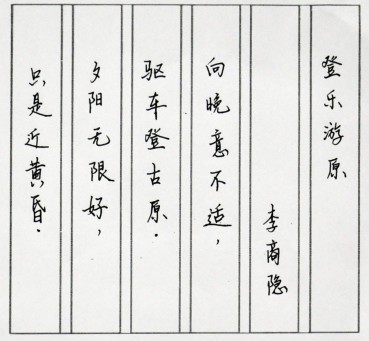 登乐游原
李商隐
向晚意不适，
驱车登古原．
夕阳无限好，
只是近黄昏．